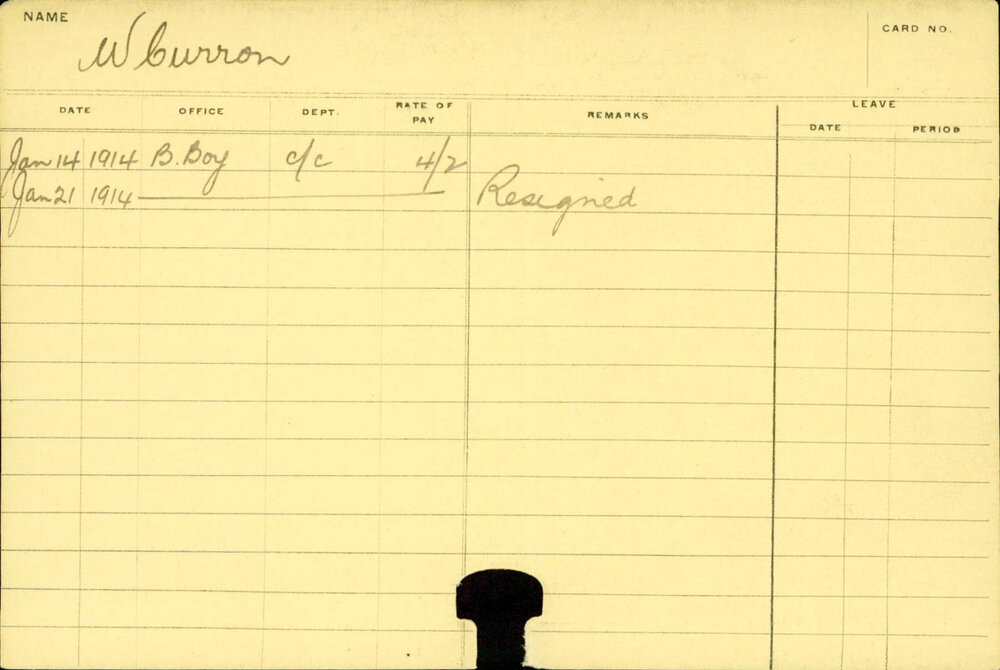 NAME
W Curron
CARD NO.
DATE OFFICE DEPT. RATE OF PAY REMARKS LEAVE
DATE PERIOD
Jan 14 1914 B. Boy c/c 4/2
Jan 21 1914 Resigned